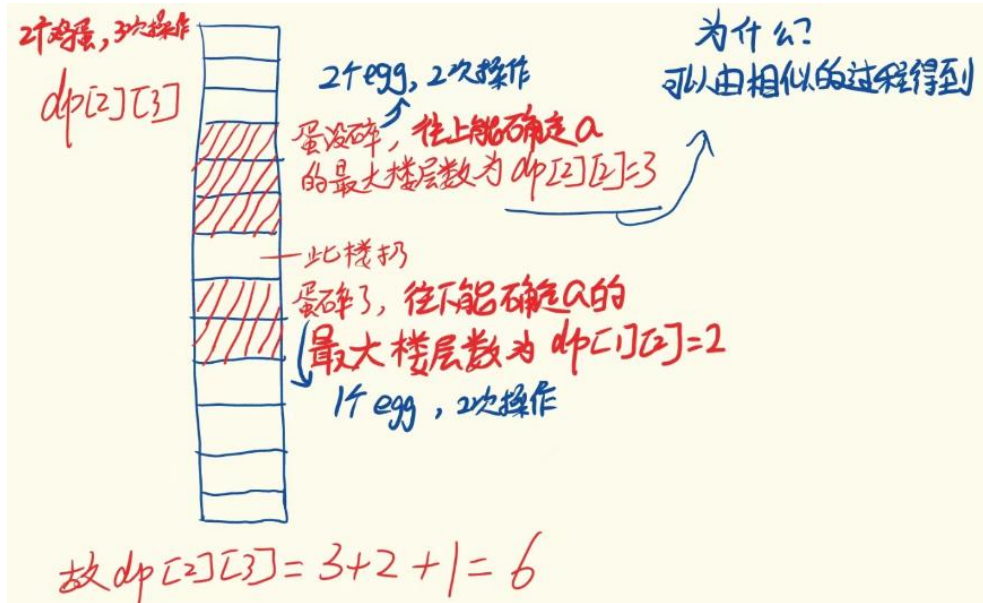 2个鸡蛋,3次操作
dp[2][3]
2个egg,2次操作
蛋没碎,往上能确定a
的最大楼层数为dp[2][2]=3
为什么?
可以由相似的过程得到
此楼扔
蛋碎了,往下能确定a的
最大楼层数为dp[1][2]=2
1个egg,2次操作
故dp[2][3]=3+2+1=6